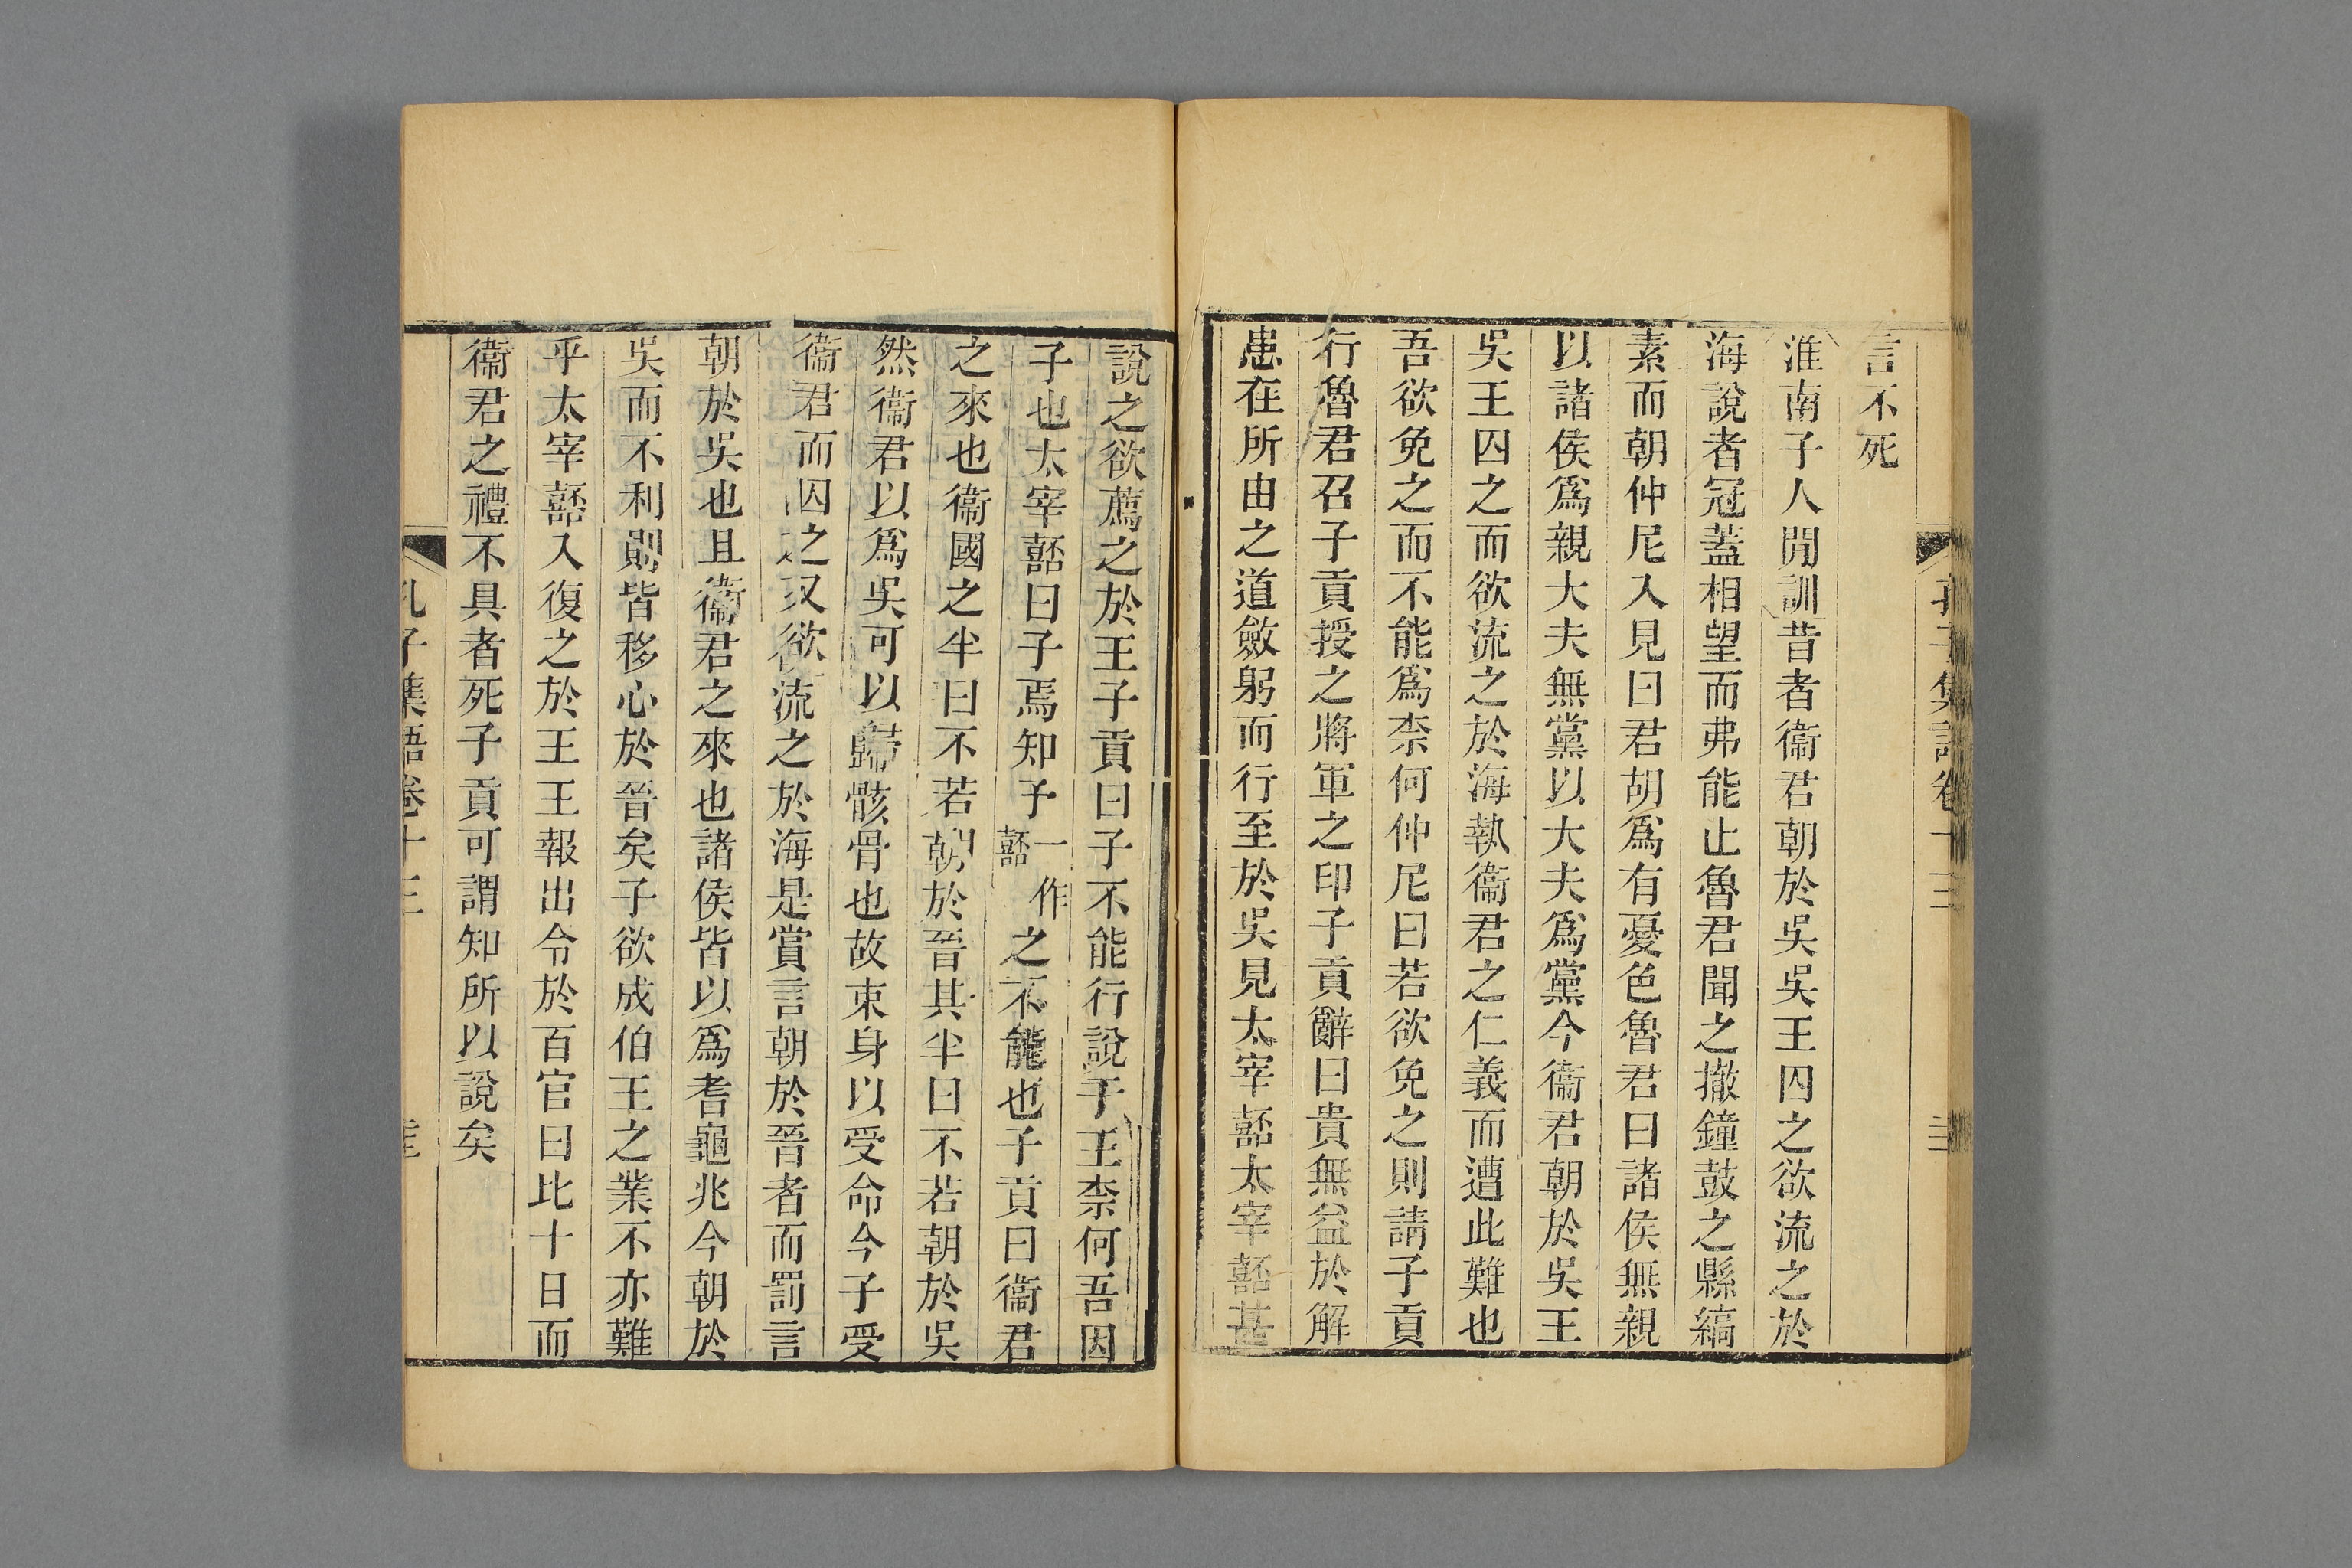 言不死
淮南子人閒訓昔者衞君朝於吳吳王囚之欲流之於
海說者冠蓋相望而弗能止魯君聞之撤鐘鼓之縣縞
素而朝仲尼入見曰君胡爲有憂色魯君曰諸侯無親
以諸侯爲親大夫無黨以大夫爲黨今衞君朝於吳王
吳王囚之而欲流之於海執衞君之仁義而遭此難也
吾欲免之而不能爲柰何仲尼曰若欲免之則請子貢
行魯君召子貢授之將軍之印子貢辭曰貴無益於解
患在所由之道斂躬而行至於吳見太宰嚭太宰嚭甚
說之欲薦之於王子貢曰子不能行說于王柰何吾因
子也太宰嚭曰子焉知予一作嚭之不能也子貢曰衞君
之來也衞國之半曰不若朝於晉其半曰不若朝於吳
然衞君以爲吳可以歸骸骨也故束身以受命今子受
衞君而囚之又欲流之於海是賞言朝於晉者而罰言
朝於吳也且衞君之來也諸侯皆以爲耆龜兆今朝於
吳而不利則皆移心於晉矣子欲成伯王之業不亦難
乎太宰嚭入復之於王王報出令於百官曰比十日而
衞君之禮不具者死子貢可謂知所以說矣
孔子集語卷十三